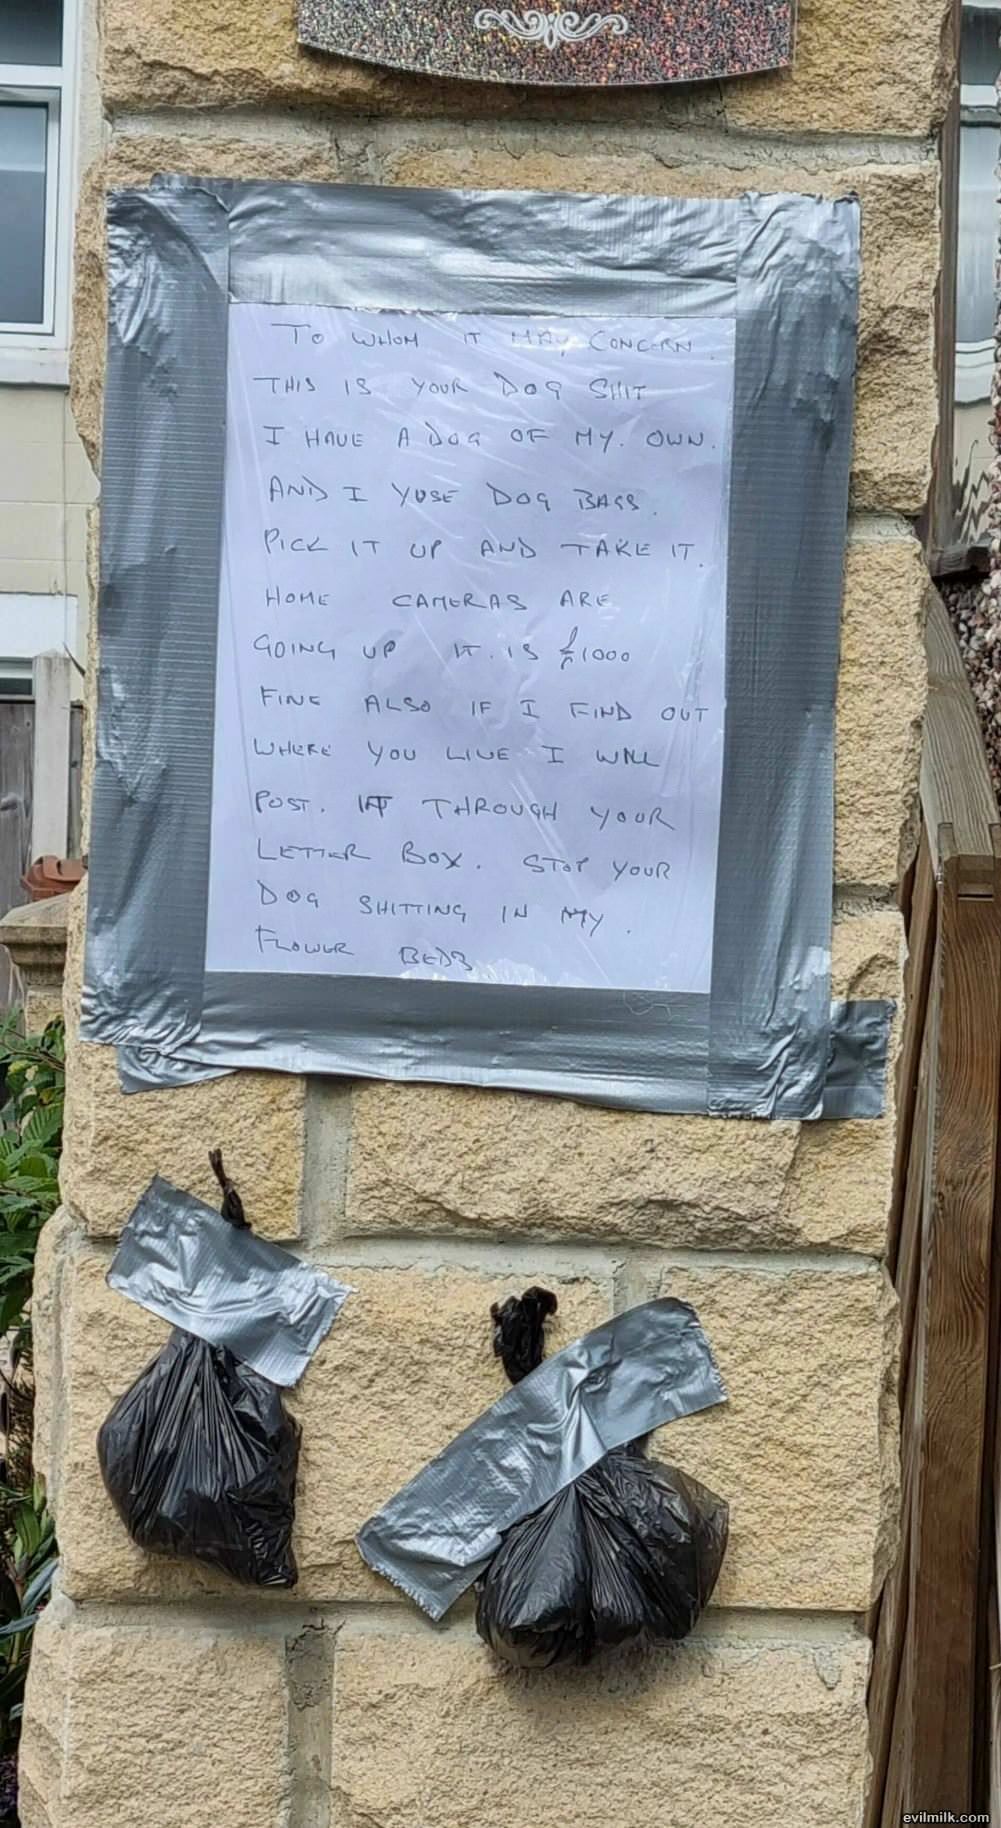 TO WHOM IT MAY CONCERN.
THIS IS YOUR DOG SHIT
I HAVE A DOG OF MY. OWN.
AND I YUSE DOG BAGS.
PICK IT UP AND TAKE IT.
HOME CAMERAS ARE
GOING UP IT. IS £1000
FINE ALSO IF I FIND OUT
WHERE YOU LIVE I WILL
POST. IT THROUGH YOUR
LETTER BOX. STOP YOUR
DOG SHITTING IN MY.
FLOWER BEDS
evilmilk.com